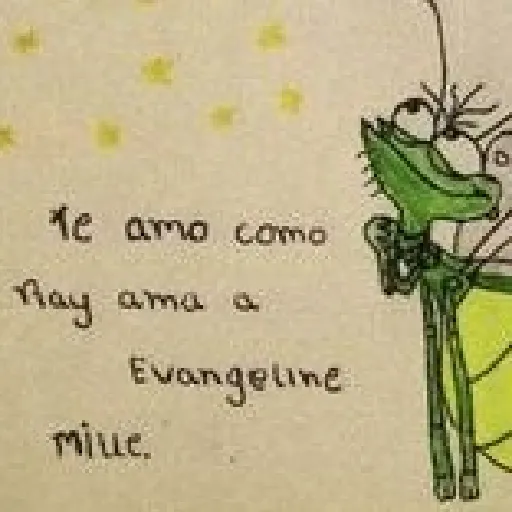 Te amo como
Ray ama a
Evangeline
mille.